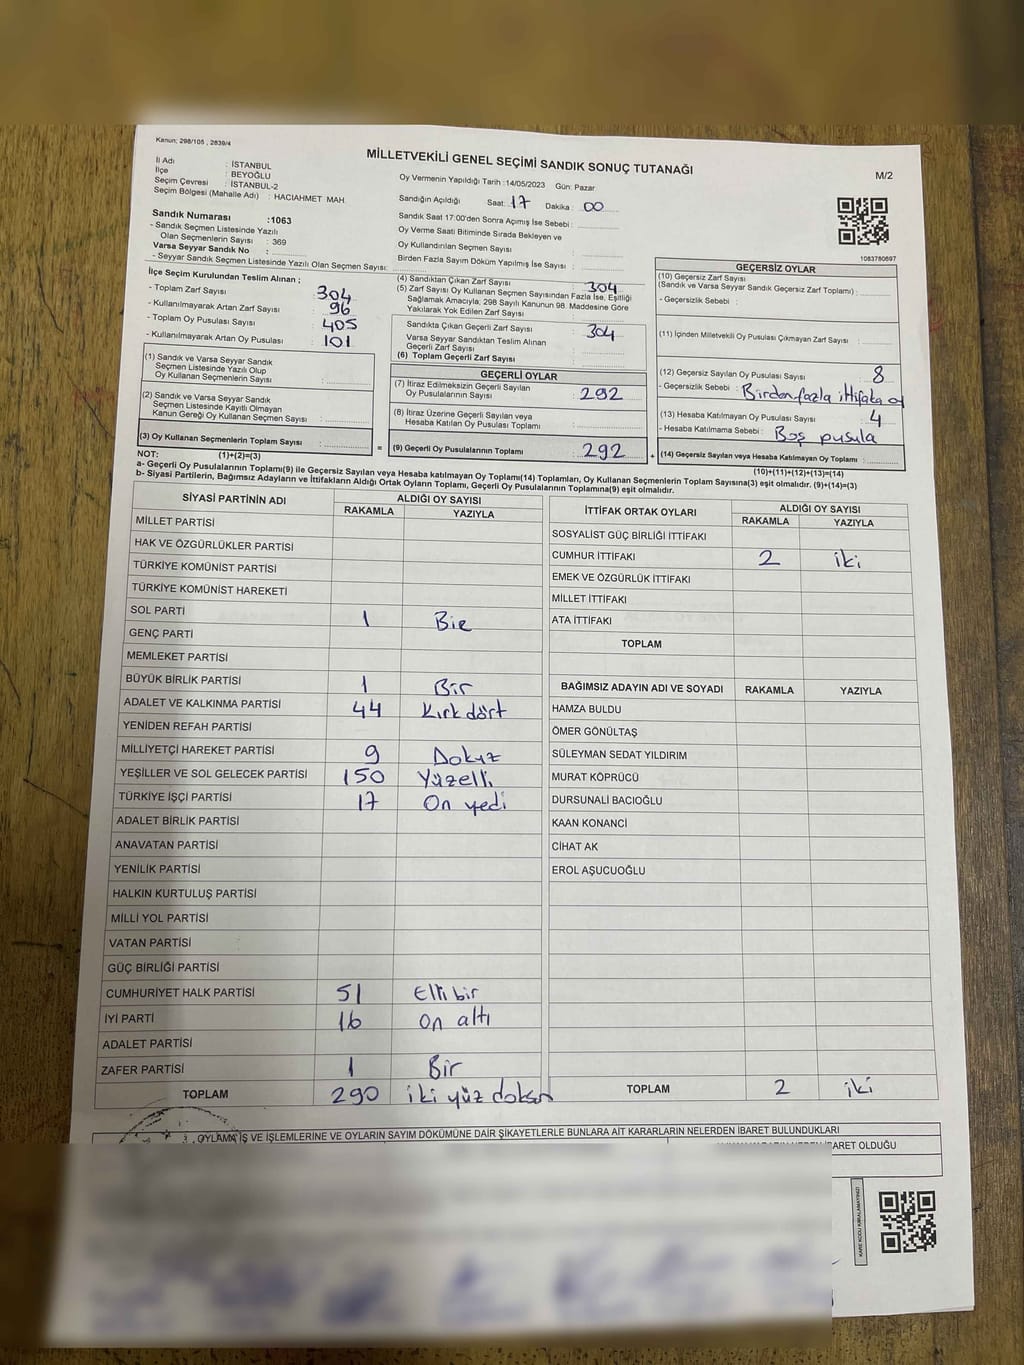 Kanun: 298/105 , 2839/4
MİLLETVEKİLİ GENEL SEÇİMİ SANDIK SONUÇ TUTANAĞI
M/2
İl Adı : İSTANBUL
İlçe : BEYOĞLU
Seçim Çevresi : İSTANBUL-2
Seçim Bölgesi (Mahalle Adı) : HACIAHMET MAH.
Sandık Numarası :1063
- Sandık Seçmen Listesinde Yazılı
Olan Seçmenlerin Sayısı : 369
Varsa Seyyar Sandık No :
- Seyyar Sandık Seçmen Listesinde Yazılı Olan Seçmen Sayısı:
Oy Vermenin Yapıldığı Tarih :14/05/2023 Gün: Pazar
Sandığın Açıldığı Saat: 17 Dakika : 00
Sandık Saat 17:00'den Sonra Açılmış İse Sebebi :
Oy Verme Saati Bitiminde Sırada Bekleyen ve
Oy Kullandırılan Seçmen Sayısı :
Birden Fazla Sayım Döküm Yapılmış İse Sayısı :
1083780697
İlçe Seçim Kurulundan Teslim Alınan ;
- Toplam Zarf Sayısı : 304
- Kullanılmayarak Artan Zarf Sayısı : 96
- Toplam Oy Pusulası Sayısı : 405
- Kullanılmayarak Artan Oy Pusulası : 101
(1) Sandık ve Varsa Seyyar Sandık
Seçmen Listesinde Yazılı Olup
Oy Kullanan Seçmenlerin Sayısı :
(2) Sandık ve Varsa Seyyar Sandık
Seçmen Listesinde Kayıtlı Olmayan
Kanun Gereği Oy Kullanan Seçmen Sayısı :
(3) Oy Kullanan Seçmenlerin Toplam Sayısı :
(1)+(2)=(3)
(4) Sandıktan Çıkan Zarf Sayısı : 304
(5) Zarf Sayısı Oy Kullanan Seçmen Sayısından Fazla İse, Eşitliği
Sağlamak Amacıyla, 298 Sayılı Kanunun 98. Maddesine Göre
Yakılarak Yok Edilen Zarf Sayısı :
Sandıkta Çıkan Geçerli Zarf Sayısı : 304
Varsa Seyyar Sandıktan Teslim Alınan
Geçerli Zarf Sayısı :
(6) Toplam Geçerli Zarf Sayısı :
GEÇERLİ OYLAR
(7) İtiraz Edilmeksizin Geçerli Sayılan
Oy Pusulalarının Sayısı : 292
(8) İtiraz Üzerine Geçerli Sayılan veya
Hesaba Katılan Oy Pusulası Toplamı :
= (9) Geçerli Oy Pusulalarının Toplamı : 292 +
GEÇERSİZ OYLAR
(10) Geçersiz Zarf Sayısı
(Sandık ve Varsa Seyyar Sandık Geçersiz Zarf Toplamı) :
- Geçersizlik Sebebi :
(11) İçinden Milletvekili Oy Pusulası Çıkmayan Zarf Sayısı :
(12) Geçersiz Sayılan Oy Pusulası Sayısı : 8
- Geçersizlik Sebebi : Birden fazla ittifaka oy
(13) Hesaba Katılmayan Oy Pusulası Sayısı : 4
- Hesaba Katılmama Sebebi : Boş pusula
(14) Geçersiz Sayılan veya Hesaba Katılmayan Oy Toplamı :
(10)+(11)+(12)+(13)=(14)
NOT:
a- Geçerli Oy Pusulalarının Toplamı(9) ile Geçersiz Sayılan veya Hesaba katılmayan Oy Toplamı(14) Toplamları, Oy Kullanan Seçmenlerin Toplam Sayısına(3) eşit olmalıdır. (9)+(14)=(3)
b- Siyasi Partilerin, Bağımsız Adayların ve İttifakların Aldığı Ortak Oyların Toplamı, Geçerli Oy Pusulalarının Toplamına(9) eşit olmalıdır.
SİYASİ PARTİNİN ADI ALDIĞI OY SAYISI
RAKAMLA YAZIYLA
MİLLET PARTİSİ
HAK VE ÖZGÜRLÜKLER PARTİSİ
TÜRKİYE KOMÜNİST PARTİSİ
TÜRKİYE KOMÜNİST HAREKETİ
SOL PARTİ 1 Bir
GENÇ PARTİ
MEMLEKET PARTİSİ
BÜYÜK BİRLİK PARTİSİ 1 Bir
ADALET VE KALKINMA PARTİSİ 44 Kırk dört
YENİDEN REFAH PARTİSİ
MİLLİYETÇİ HAREKET PARTİSİ 9 Dokuz
YEŞİLLER VE SOL GELECEK PARTİSİ 150 Yüzelli
TÜRKİYE İŞÇİ PARTİSİ 17 On yedi
ADALET BİRLİK PARTİSİ
ANAVATAN PARTİSİ
YENİLİK PARTİSİ
HALKIN KURTULUŞ PARTİSİ
MİLLİ YOL PARTİSİ
VATAN PARTİSİ
GÜÇ BİRLİĞİ PARTİSİ
CUMHURİYET HALK PARTİSİ 51 Elli bir
İYİ PARTİ 16 On altı
ADALET PARTİSİ
ZAFER PARTİSİ 1 Bir
TOPLAM 290 iki yüz doksan
İTTİFAK ORTAK OYLARI ALDIĞI OY SAYISI
RAKAMLA YAZIYLA
SOSYALİST GÜÇ BİRLİĞİ İTTİFAKI
CUMHUR İTTİFAKI 2 iki
EMEK VE ÖZGÜRLÜK İTTİFAKI
MİLLET İTTİFAKI
ATA İTTİFAKI
TOPLAM
BAĞIMSIZ ADAYIN ADI VE SOYADI RAKAMLA YAZIYLA
HAMZA BULDU
ÖMER GÖNÜLTAŞ
SÜLEYMAN SEDAT YILDIRIM
MURAT KÖPRÜCÜ
DURSUNALİ BACIOĞLU
KAAN KONANCİ
CİHAT AK
EROL AŞUCUOĞLU
TOPLAM 2 iki
OYLAMA İŞ VE İŞLEMLERİNE VE OYLARIN SAYIM DÖKÜMÜNE DAİR ŞİKAYETLERLE BUNLARA AİT KARARLARIN NELERDEN İBARET BULUNDUKLARI
İBARET OLDUĞU